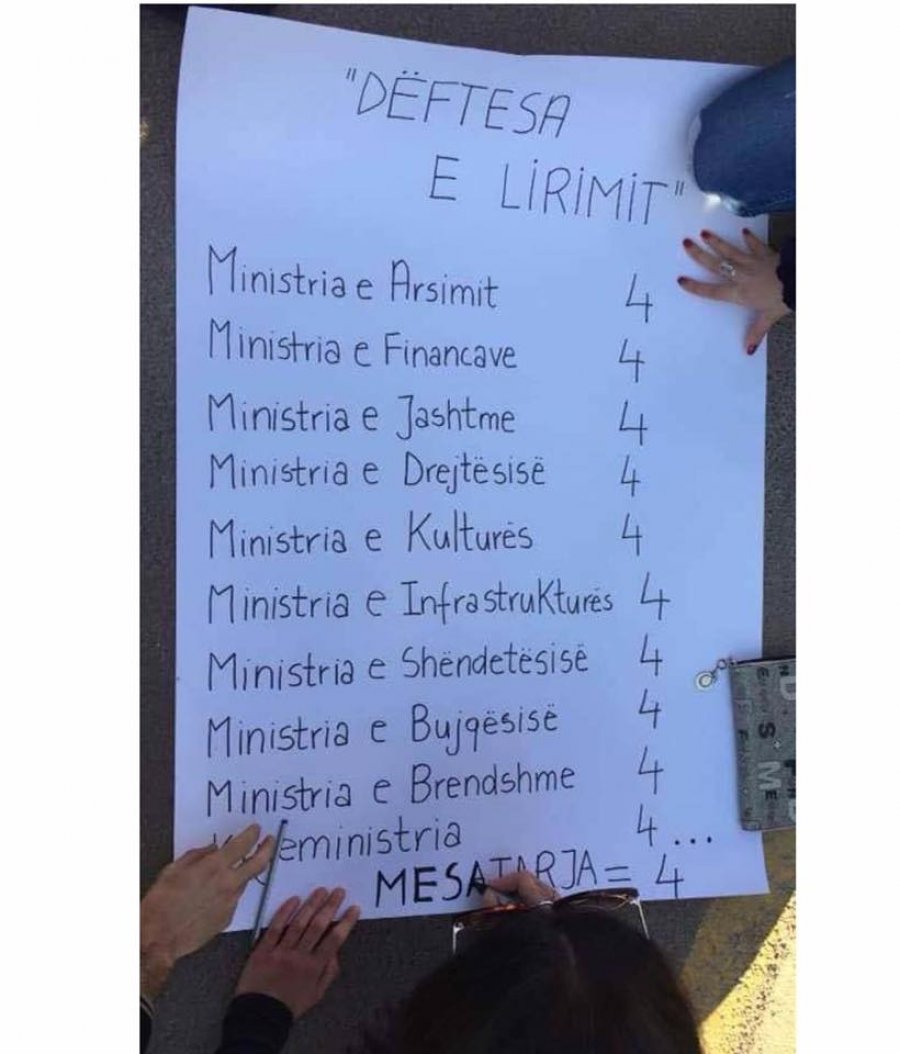 "DËFTESA
E LIRIMIT"
Ministria e Arsimit 4
Ministria e Financave 4
Ministria e Jashtme 4
Ministria e Drejtësisë 4
Ministria e Kulturës 4
Ministria e Infrastrukturës 4
Ministria e Shëndetësisë 4
Ministria e Bujqësisë 4
Ministria e Brendshme 4
eministria 4...
MESATARJA = 4